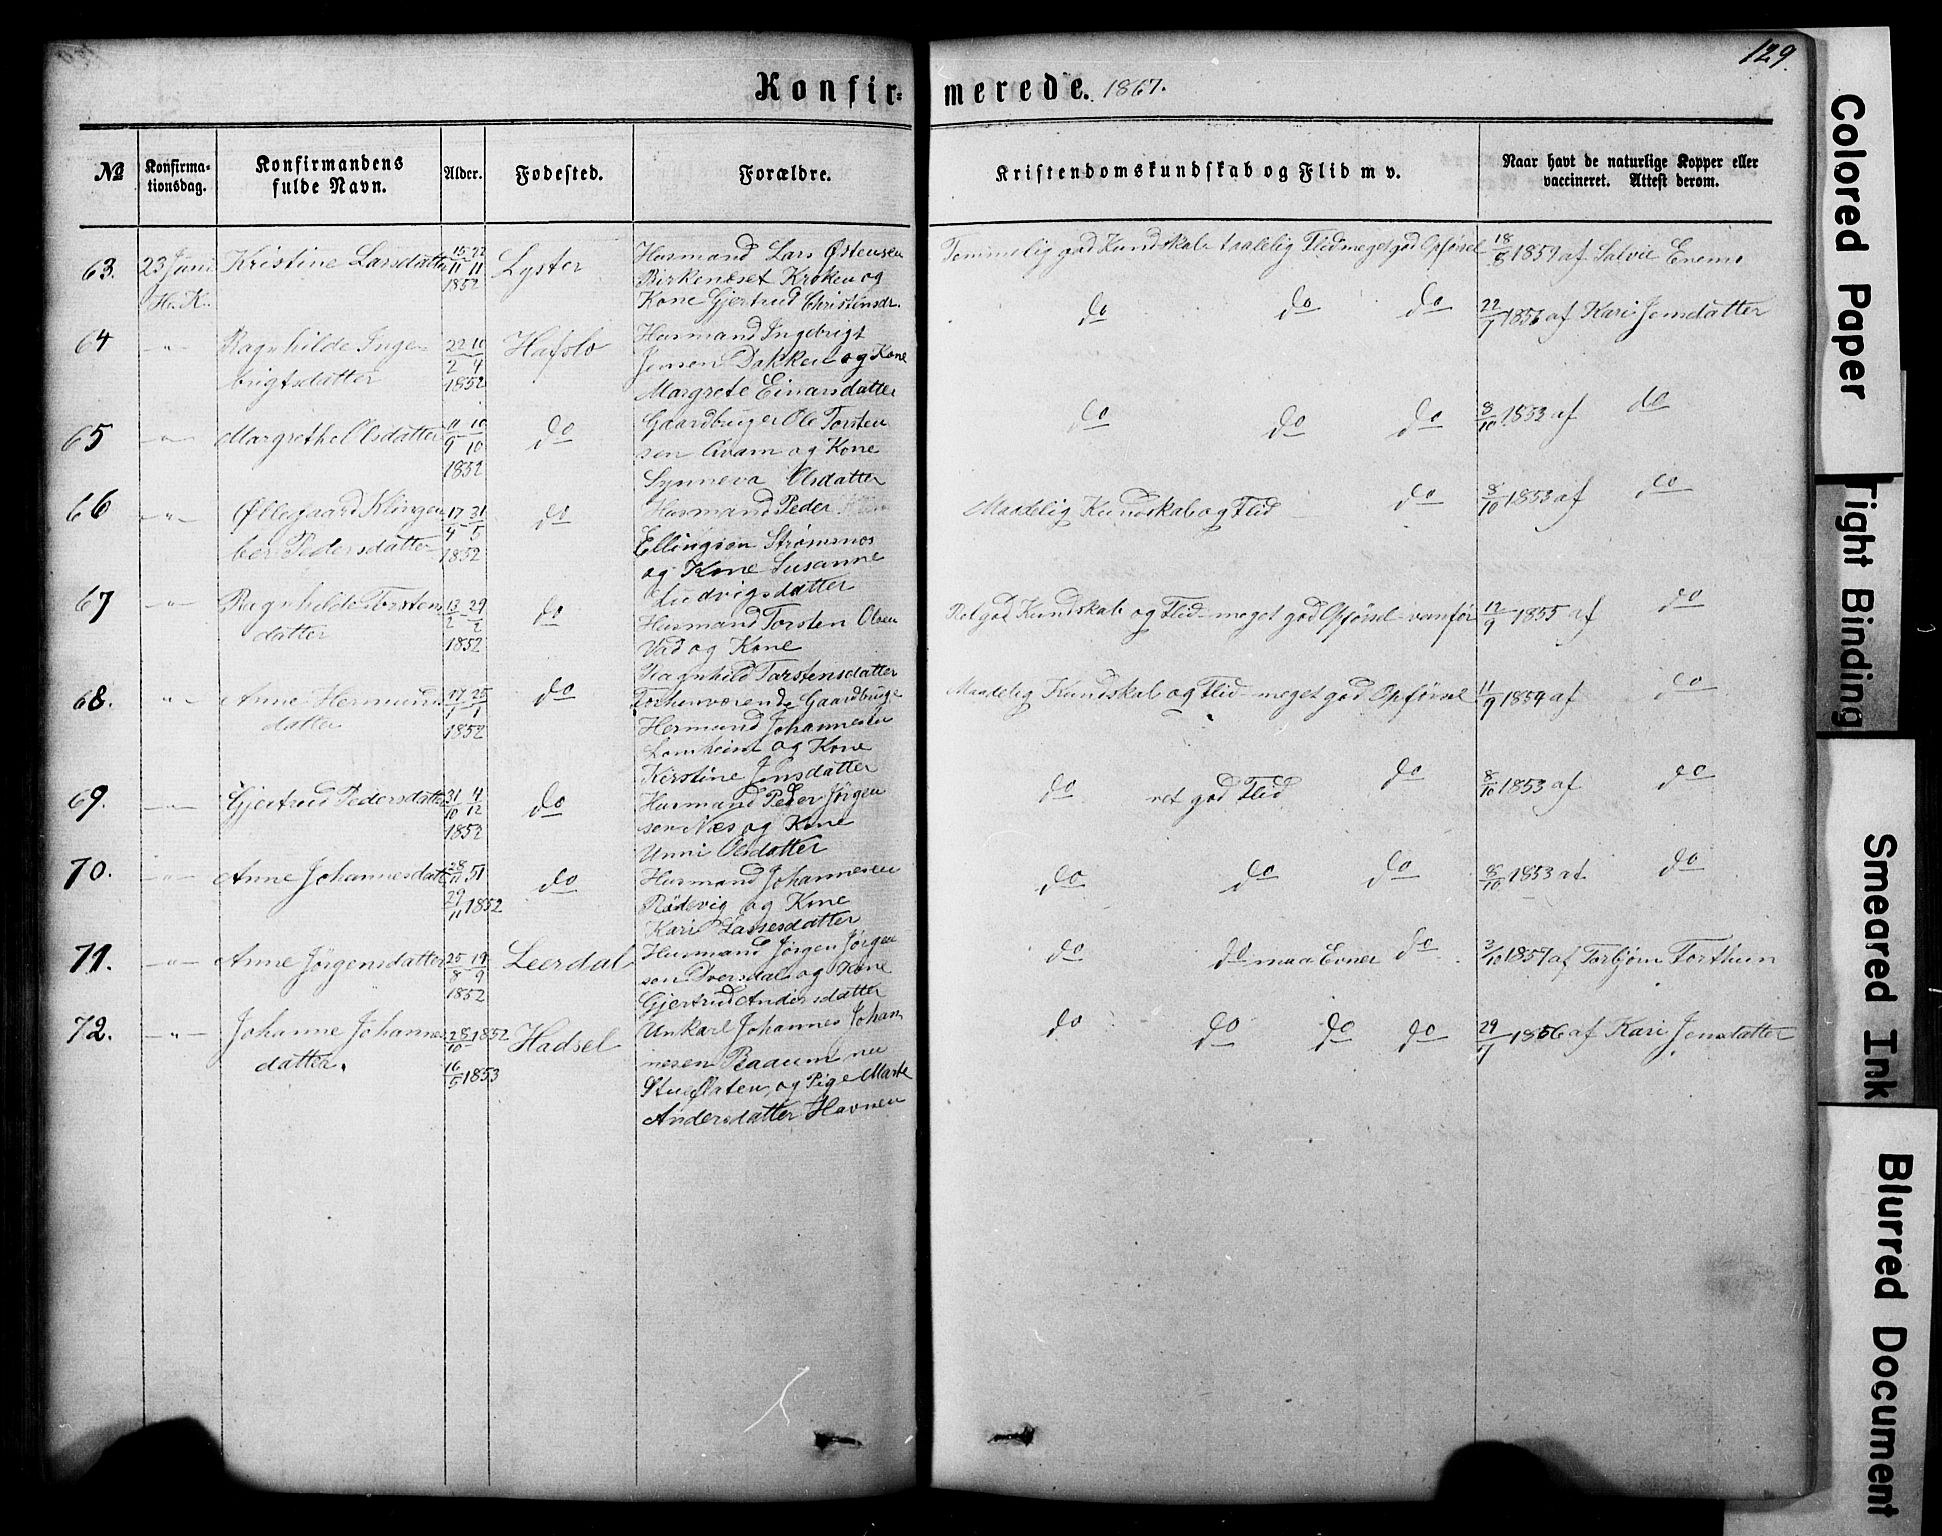 129.
Konfir= merede. 1867.
№ Konfirma-tionsdag. Konfirmandens fulde Navn. Alder. Fødested. Forældre. Kristendomskundskab og Flid m v. Naar havt de naturlige Kopper eller vaccineret. Attest derom.
63. 23 Juni Kristine Larsdatter 22/11 Lyster Husmand Lars Østensen Temmelig god Kundskab taalelig Flid meget god Opførsel 18/8 af
H. K. 1852 Birkeneset Kroken og
Kone Gjertrud Christensdr.
64 " Ragnhilde Inge- 22/2 10/4 Hafslo Husmand Ingebrigt do do do 22/7 1856 af Kari Jensdatter
brigtsdatter 1852 Jensen og Kone
Margrete Einarsdatter
65 " Margrethe Olsdatter 11/9 10/10 do Gaardbruger Ole Torsten do do do 8/10 1853 af do
1852 sen Kvam og Kone
Synneva Olsdatter
66 " Øllegaard Klingen 17/4 31/5 do Husmand Peder Maadelig Kundskab og Flid do 8/10 1853 af do
ber Pedersdatter 1852 Ellingsen Strømmos
og Kone Susanne
Ludvigsdatter
67 " Ragnhilde Torstens 13/2 29/2 do Husmand Torsten Olsen Ret god Kundskab og Flid meget god Opførsel vanfør 12/9 1855 af do
datter 1852 Vad og Kone
Ragnhild Torstensdatter
68. " Anne Hermunds 17/1 25/1 do Forhenværende Gaardbruge Maadelig Kundskab og Flid meget god Opførsel 11/9 1854 af do
datter 1852 Hermund Johannesen
Lomheim og Kone
Kirstine Jensdatter
69. " Gjertrud Pedersdatter 31/10 4/12 do Husmand Peder Jørgen do ret god Flid do 8/10 1853 af do
1852 sen Næs og Kone
Unni Olsdatter
70. " Anne Johannesdatt 28/11 51 do Husmand Johannesen do do do 8/10 1853 af do
29/11 1852 Rødevig og Kone
Kari Lassesdatter
71. " Anne Jørgensdatter 25/8 19/9 Leerdal Husmand Jørgen Jørgen do do maa Evner do 3/10 1857 af Torbjørn Forthun
1852 sen og Kone
Gjertrud Andersdatter
72. " Johanne Johannes 28/10 1852 Hadsel Unkarl Johannes Johan do do do do 29/7 1856 af Kari Jensdatter
datter. 16/5 1853 nesen nu
og Pige Marte
Andersdatter Havnen
Colored Paper
Tight Binding
Smeared Ink
Blurred Document